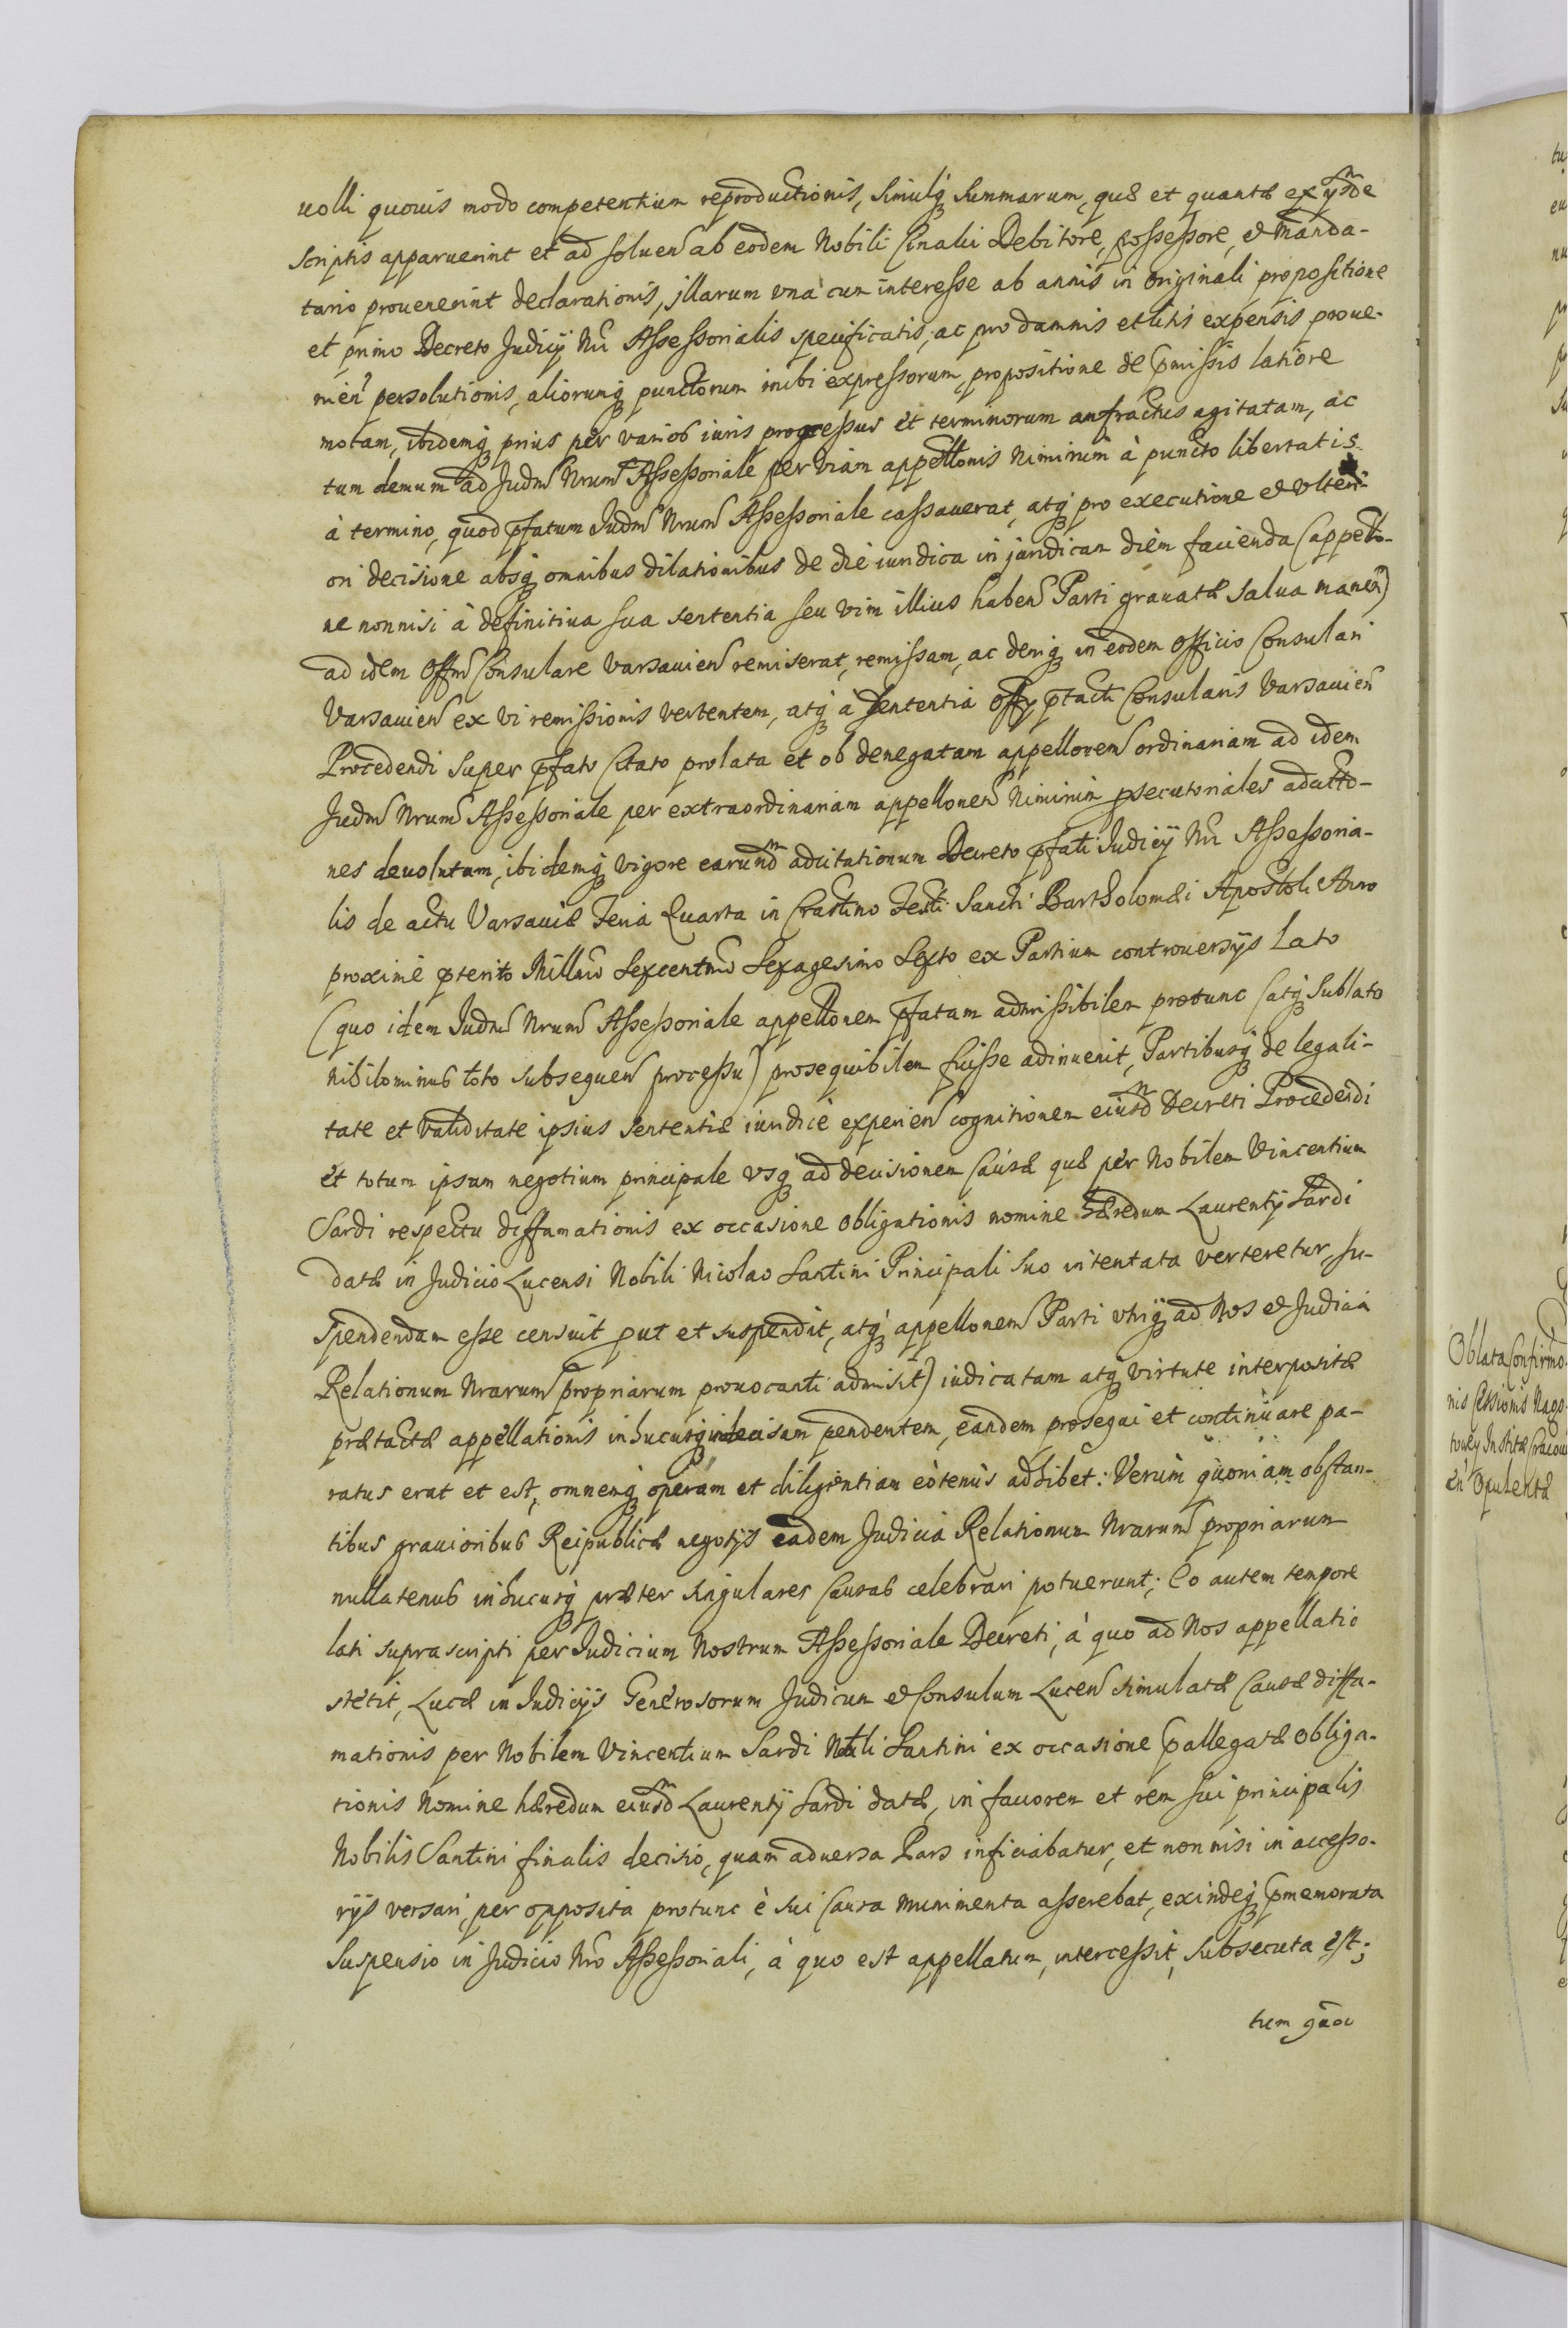 uolli quouis modo competentium reproductionis, simulq; summarum, quæ et quantæ ex ysdē
scriptis apparuerint et ad soluen̄ ab eodem Nobili Debitore, possessore, et manda-
tario prouenerint declarationis, illarum vnà cum interesse ab annis in originali propositione
et primo Decreto Judicÿ Nr̄i Assessorialis specificatis, ac pro damnis et litis expensis proue-
nien̄ persolutionis, aliorumq; punctorum inibi expressorum, propositione de p̄missis latiore
motam, ibidemq; prius per varios iuris progressus et terminorum anfractus agitatam, ac
tum demum ad Judm̄ Nrum̄ Assessoriale per viam appell̄onis nimirum à puncto libertatis
à termino, quod p̄fatum Judm̄ Nrum̄ Assessoriale cassauerat, atq; pro executione et vlteri-
ori decisione absq; omnibus dilationibus de die iuridica in juridicam diem facienda (appell̄o-
ne nonnisi à definitiua sua sententia seu vim illius haben̄ Parti grauatæ salua manen̄)
ad idem Offm̄ Consulare Varsauien̄ remiserat, remissam, ac deniq; in eodem Officio Consulari
Varsauien̄ ex vi remissionis vertentem, atq; à sententia Offÿ p̄tacti Consularis Varsauien̄
Procedendi super p̄fato Citato prolata et ob denegatam appellonem̄ ordinariam ad idem
Judm̄ Nrum̄ Assessoriale per extraordinariam appellonem̄ nimirum p̄secutoriales adcitt̄o-
nes deuolutam, ibidemq; vigore earund̄m adcitationum Decreto p̄fati Judicÿ Nr̄i Assessoria-
lis de actu Varsauiæ Feria Quarta in Crastino Festi Sancti Bartholomæi Apostoli Anno
proximè p̄terito Millm̄o Sexcentm̄o Sexagesimo Sexto ex Partium controuersÿs lato
(quo idem Judm̄ Nrum̄ Assessoriale appell̄onem p̄fatam admissibilem protunc (atq; sublato
nihilominus toto subsequen̄ processu) prosequibilem fuisse adinuenit, Partibusq; de legali-
tate et validitate ipsius sententiæ iuridicè experien̄ cognitionem eiusd̄m Decreti Procedendi
et totum ipsum negotium principale vsq; ad decisionem Causæ quæ per Nobilem Vincentium
Sardi respectu diffamationis ex occasione obligationis nomine hæredum Laurentÿ Sardi
datæ in Judicio Lucensi Nobili Nicolao Santini Principali suo intentata verteretur, su-
spendendam esse censuit p̄ut et suspendit, atq; appellonem̄ Parti vtriq; ad Nos et Judicia
Relationum Nrarum̄ propriarum prouocanti admisit) iudicatam atq; virtute interpositæ
prætactæ appellationis inhucusq; indecisam pendentem, eandem prosequi et continuare pa-
ratus erat et est, omnemq; operam et diligentiam eòtenùs adhibet: Verùm quoniam obstan-
tibus grauioribus Reipublicæ negotÿs eadem Judicia Relationum Nrarum̄ propriarum
nullatenus inhucusq; præter singulares Causas celebrari potuerunt; Eo autem tempore
lati suprascripti per Judicium Nostrum Assessoriale Decreti, à quo ad Nos appellatio
stetit, Lucæ in Judicÿs Generosorum Judicum et Consulum Lucen̄ simulatæ Causæ diffa-
mationis per Nobilem Vincentium Sardi Nbli Santini ex occasione p̄allegatæ obliga-
tionis Nomine hæredum eiusd̄m Laurentÿ Sardi datæ, in fauorem et rem sui principalis
Nobilis Santini finalis decisio, quam aduersa Pars inficiabatur, et nonnisi in accesso-
rÿs versari, per opposita protunc è sui Causa munimenta asserebat, exindeq; p̄memorata
suspensio in Judicio Nr̄o Assessoriali, à quo est appellatum, intercessit, subsecuta est;
tum quoc
Oblata Confirmo-
nis Cessionis Nago-
en̄ Opulentæ